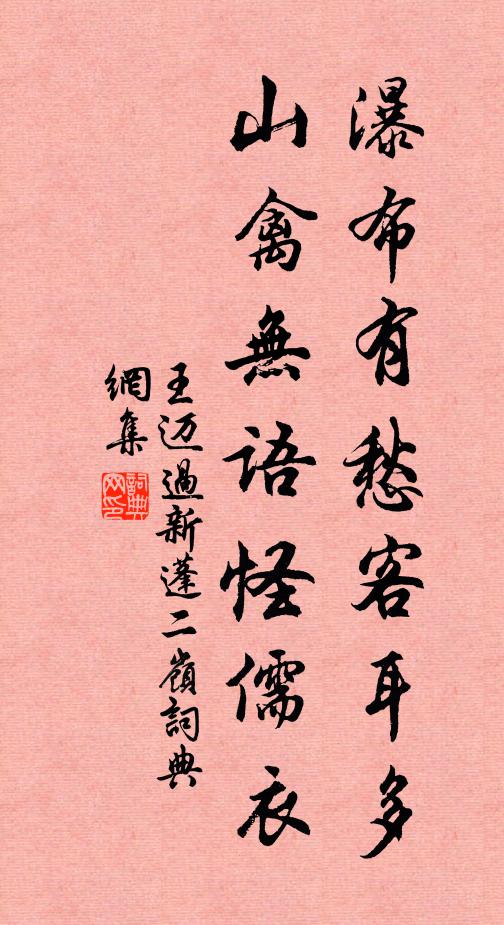 瀑布有愁客耳多
山禽無語怪儒衣
王迈過新蓬二嶺詞典
網集
詞典
网印